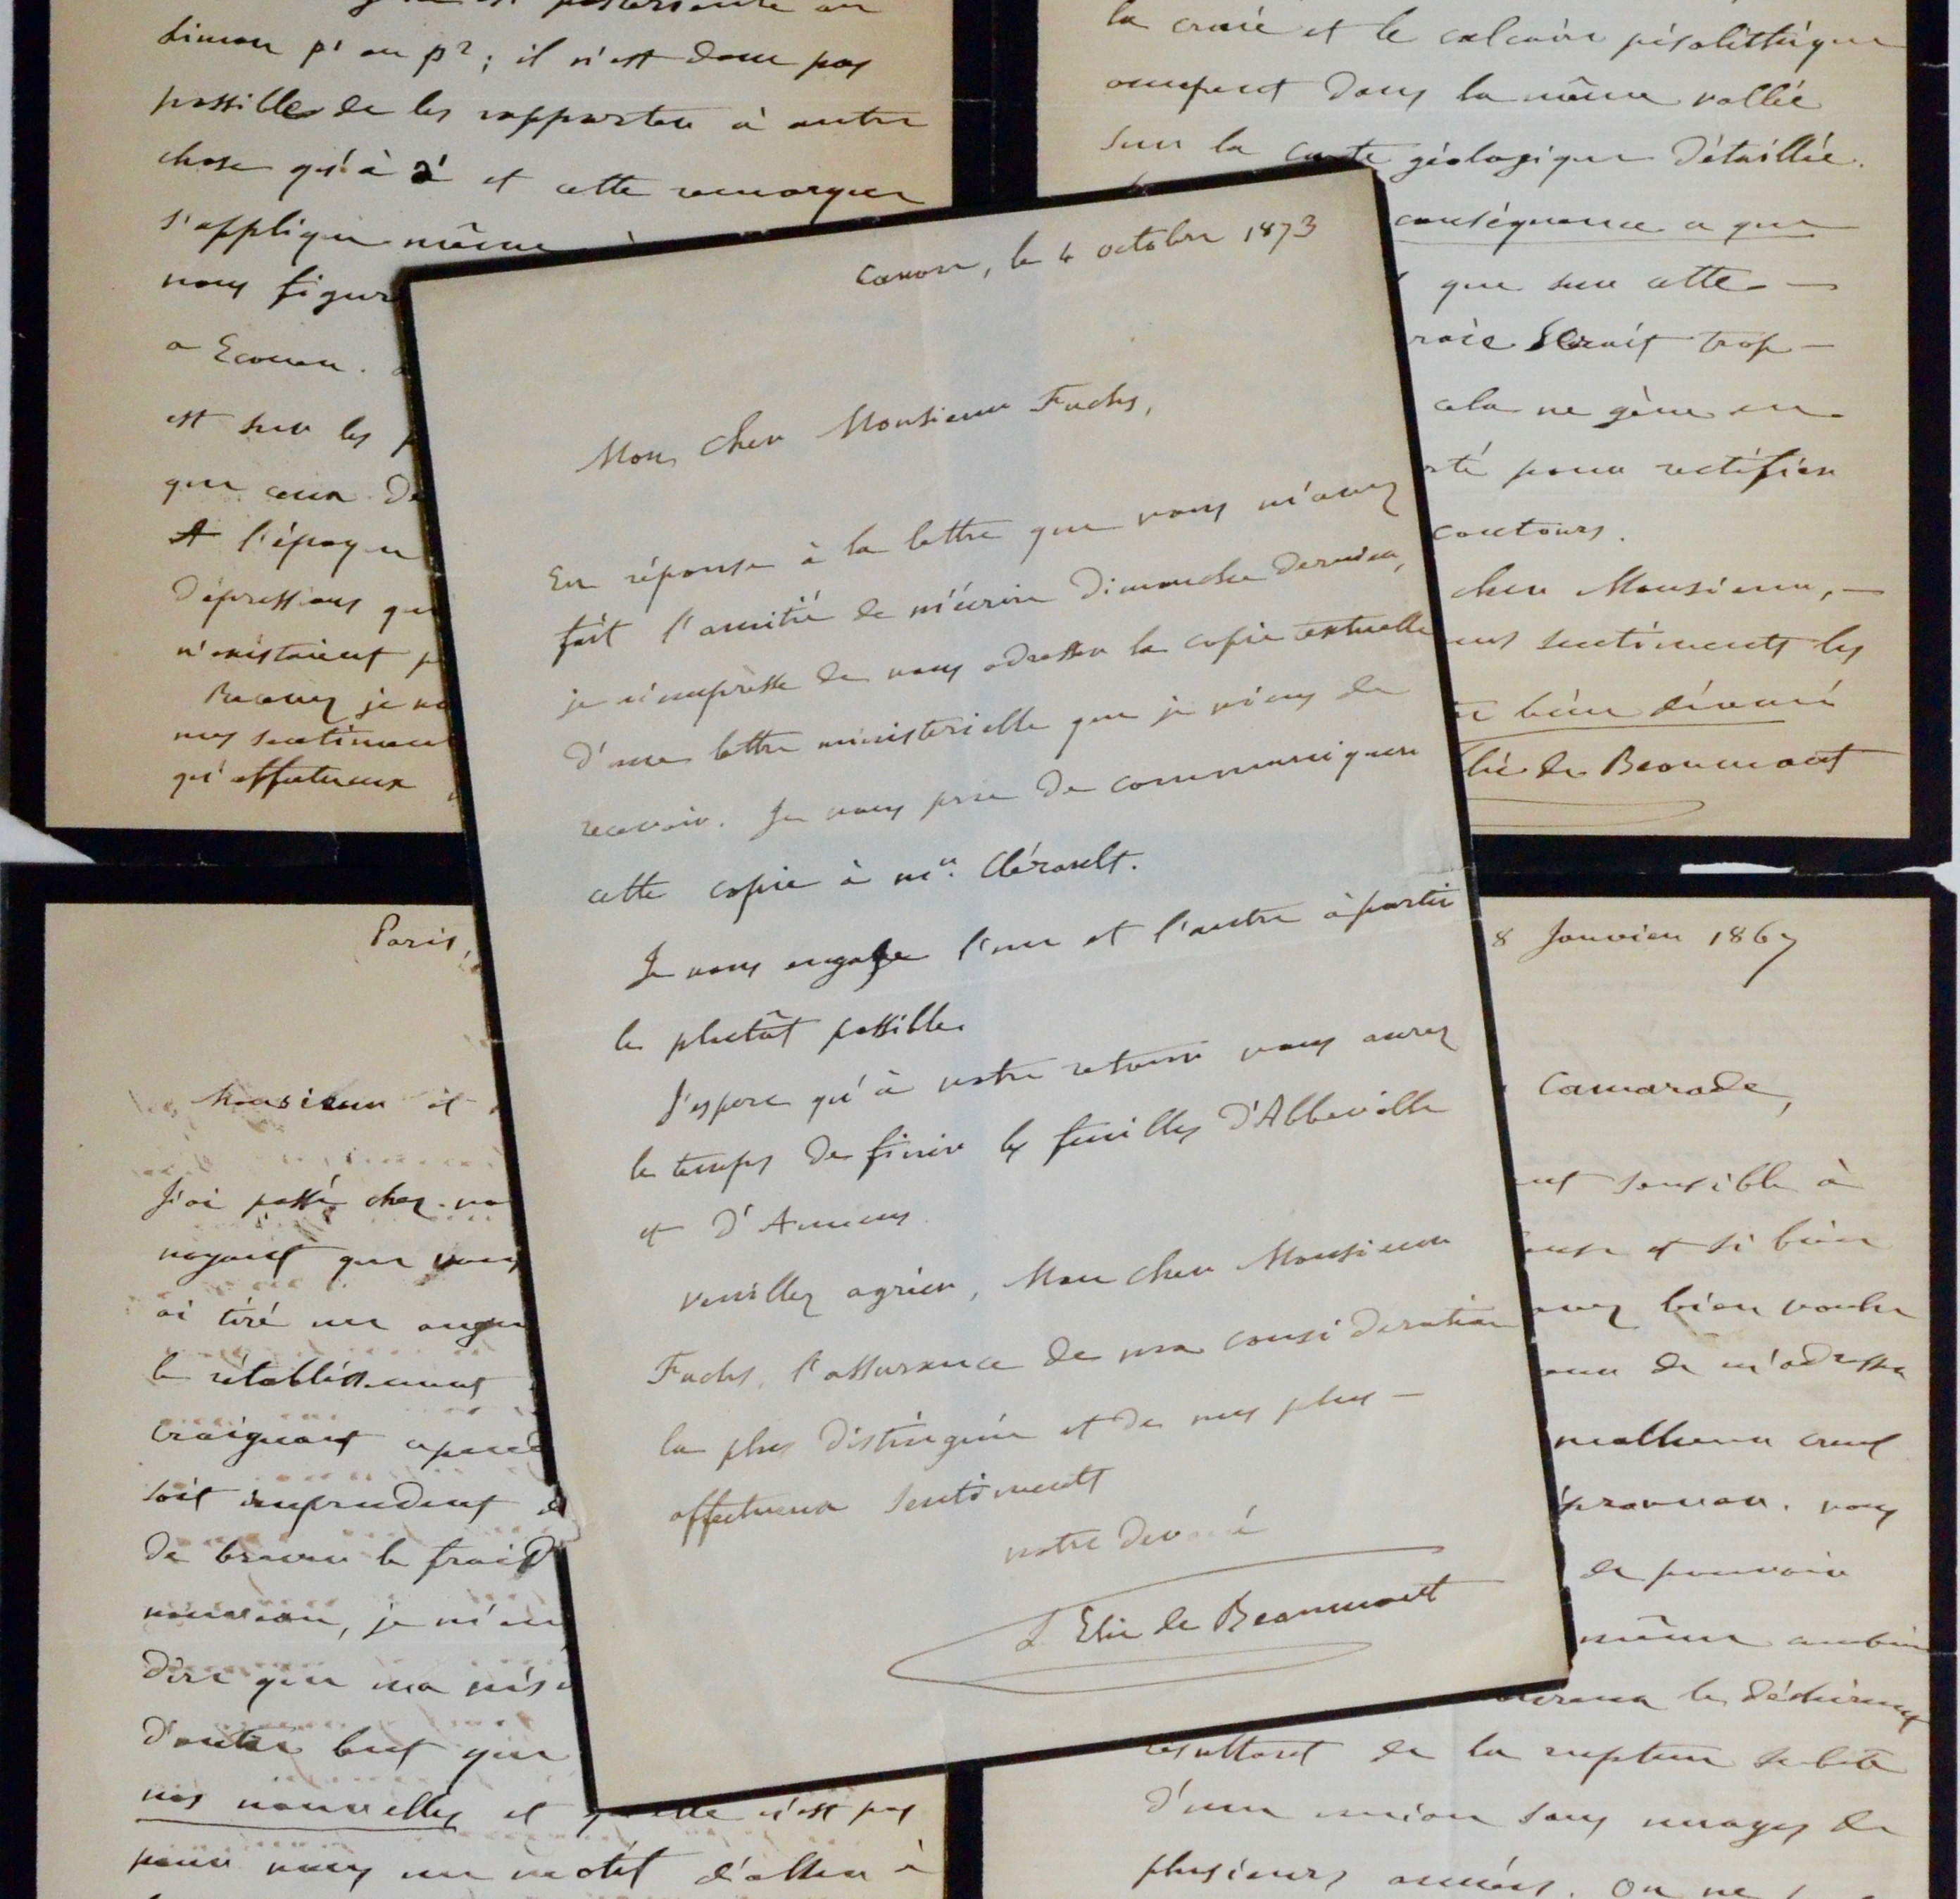 limon p¹ ou p²; il n'est donc pas
possible de les rapporter à autre
chose qu'à a¹ et cette remarque
s'applique même à
nous figur
a Ecouen.
est sur les p
que ceux de
A l'époque
dépressions que
n'existaient p
Recevez je vo
mes sentiment
qu'affectueux
la craie et le calcaire pisolithique
occupent dans la même vallée
sur la carte géologique détaillée.
conséquence a que
que sur cette
raie serait trop
cela ne gêne en
rté pour rectifier
contours.
cher Monsieur,
sentiments les
bien dévoué
Elie de Beaumont
Canon, le 4 octobre 1873
Mon cher Monsieur Fuchs,
En réponse à la lettre que vous m'avez
fait l'amitié de m'écrire Dimanche dernier,
je m'empresse de vous adresser la copie textuelle
d'une lettre ministerielle que je viens de
recevoir. Je vous prie de communiquer
cette copie à mr. Clérault.
Je vous engage l'un et l'autre à partir
le plutôt possible.
J'espere qu'à votre retour vous aurez
le temps de finir les feuilles d'Abbeville
et d'Amiens.
Veuillez agréer, Mon cher Monsieur
Fuchs, l'assurance de ma consideration
la plus distinguée et de mes plus
affectueux sentiments
votre devoué
L. Elie de Beaumont
Paris,
Monsieur et
J'ai passé chez vo
voyant que vous
ai tiré un augu
le rétablissement
craignant
soit imprudent
de braver le froid
nouveau, je m'en
dire que ma
d'autre but que
nos nouvelles et qu'elle n'est pas
pour vous un motif d'aller à
8 Janvier 1867
Camarade,
sensible à
et si bien
avez bien voulu
de m'adresser
malheur cruel
éprouver. vous
de pouvoir
même
le déchirement
résultant de la rupture subite
d'une union sans nuages de
plusieurs années. On ne